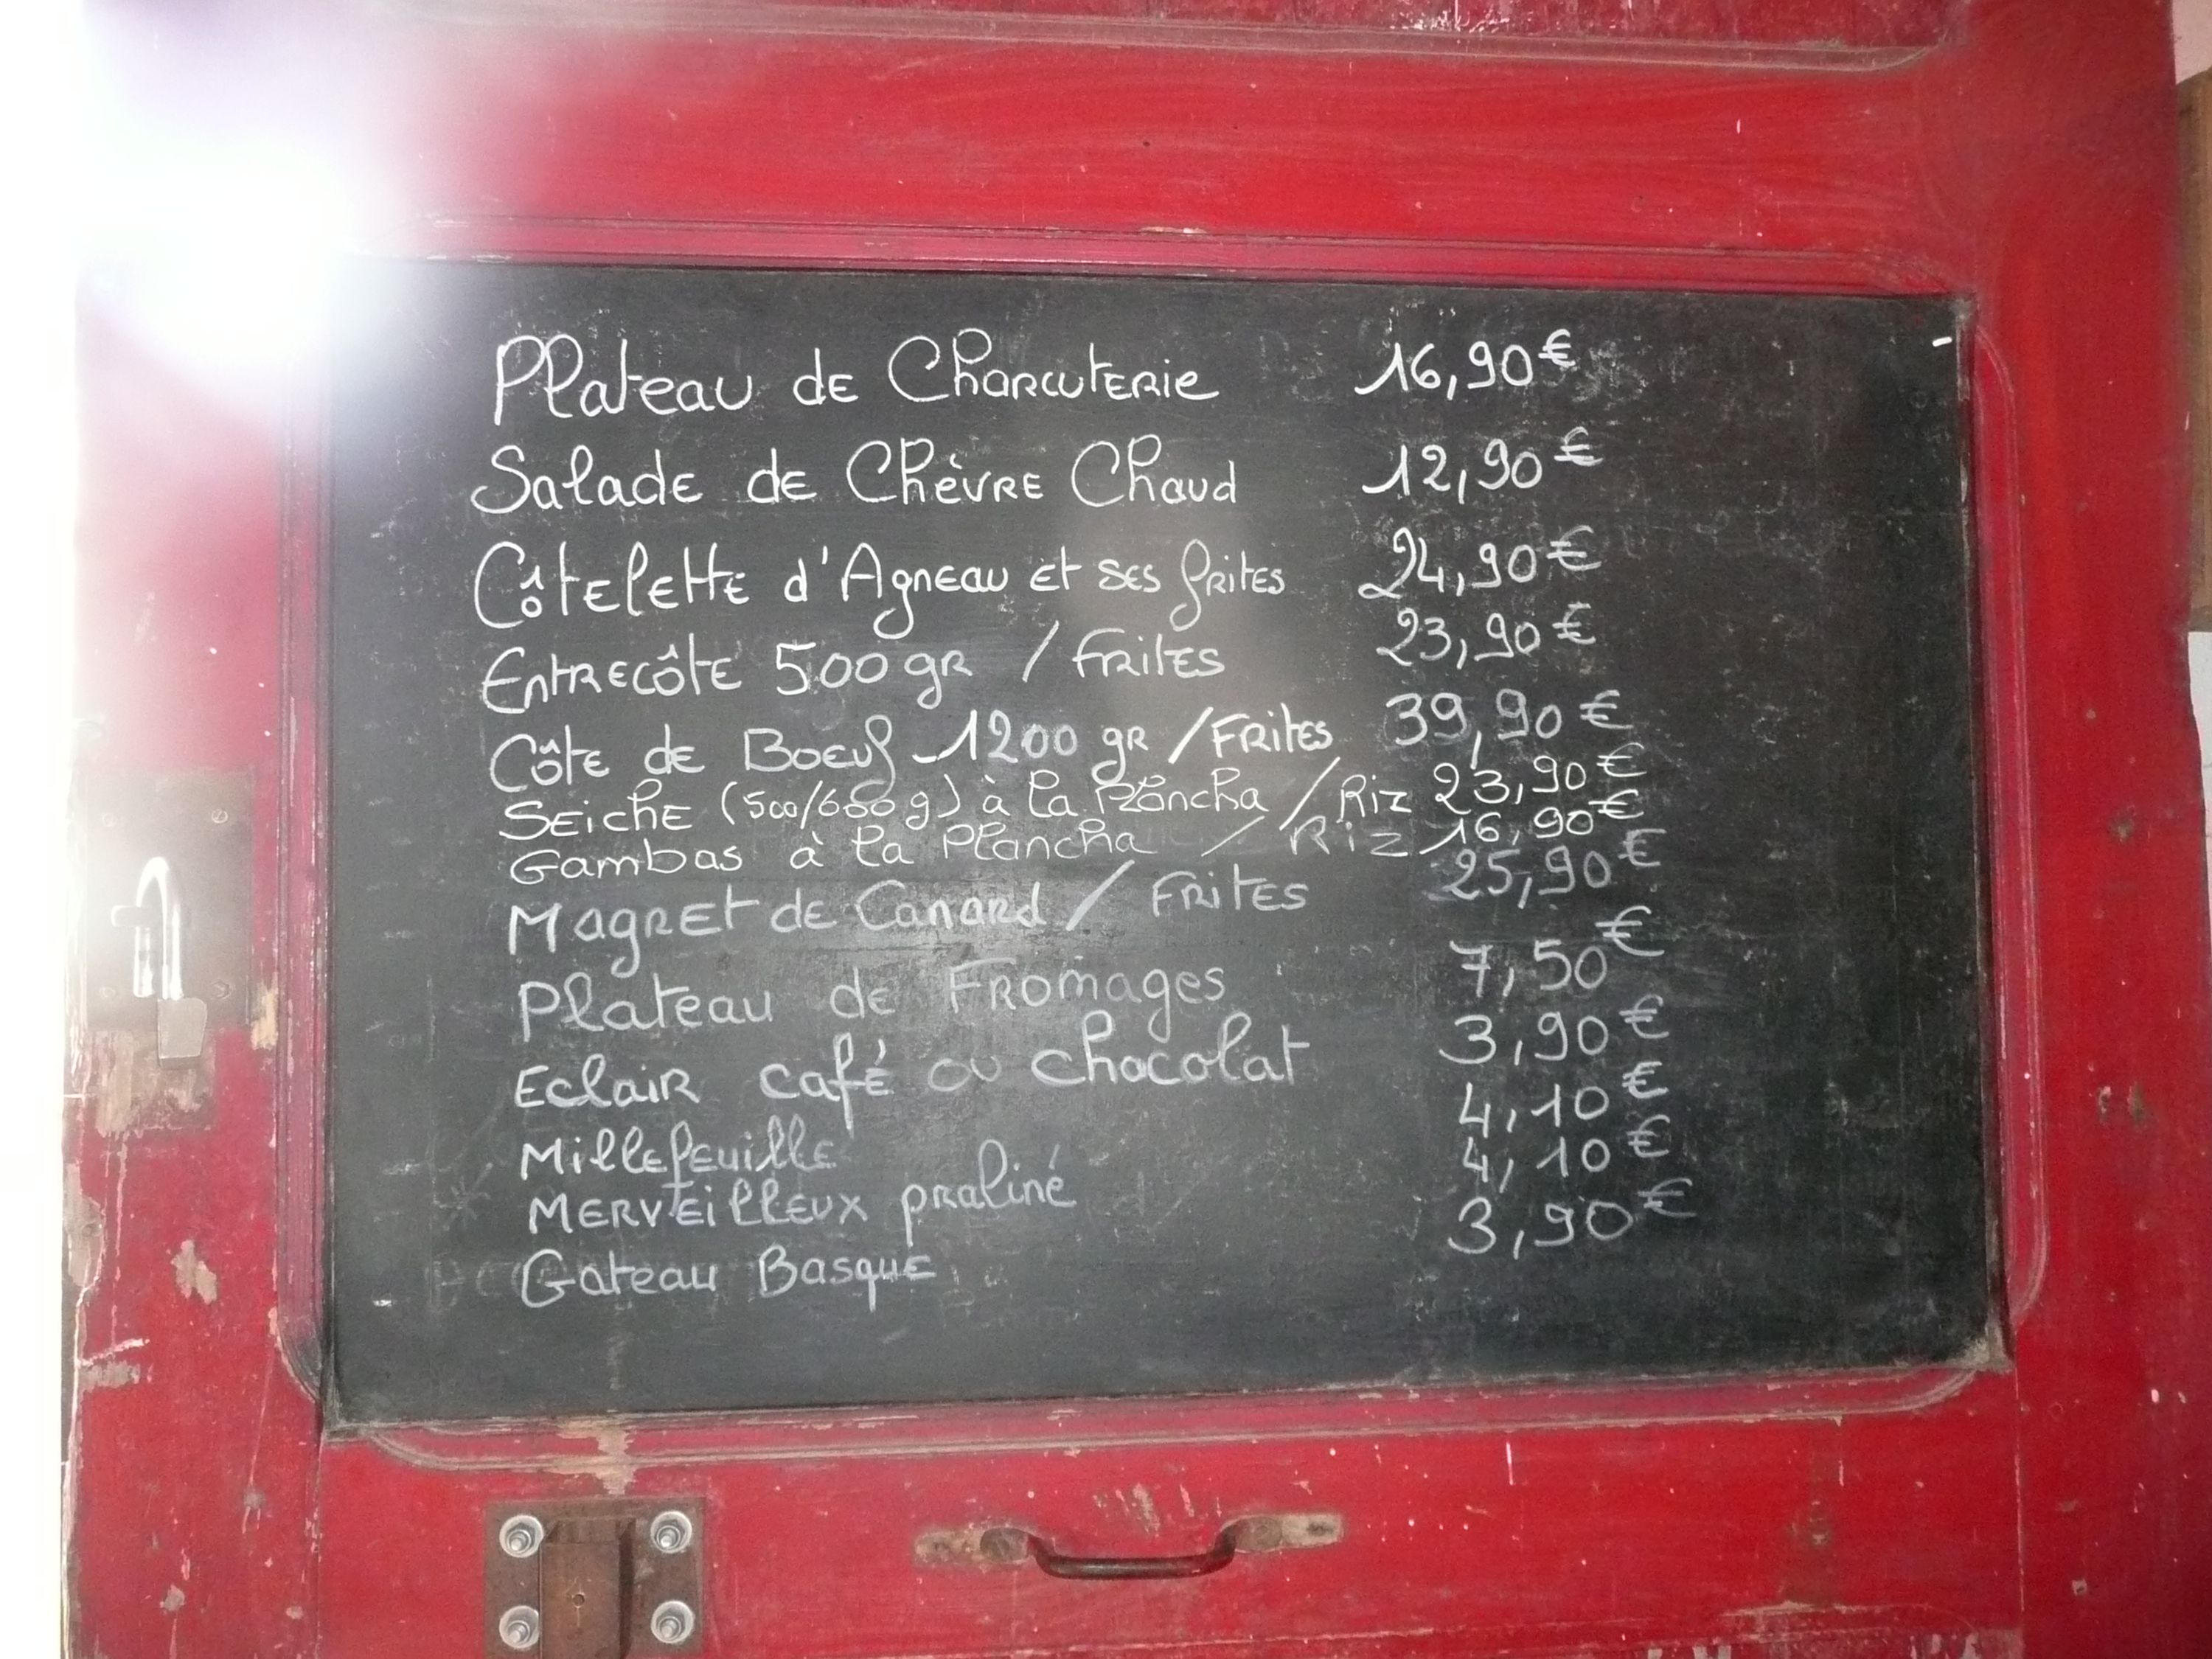 Plateau de Charcuterie 16,90€
Salade de Chèvre Chaud 12,90€
Côtelette d'Agneau et ses frites 24,90€
Entrecôte 500 gr / Frites 23,90€
Côte de Boeuf 1200 gr / Frites 39,90€
Seiche (500/600 g) à la Plancha / Riz 23,90€
Gambas à la Plancha / Riz 16,90€
Magret de Canard / Frites 25,90€
Plateau de Fromages 7,50€
Eclair café ou chocolat 3,90€
Millefeuille 4,10€
Merveilleux praliné 4,10€
Gateau Basque 3,90€